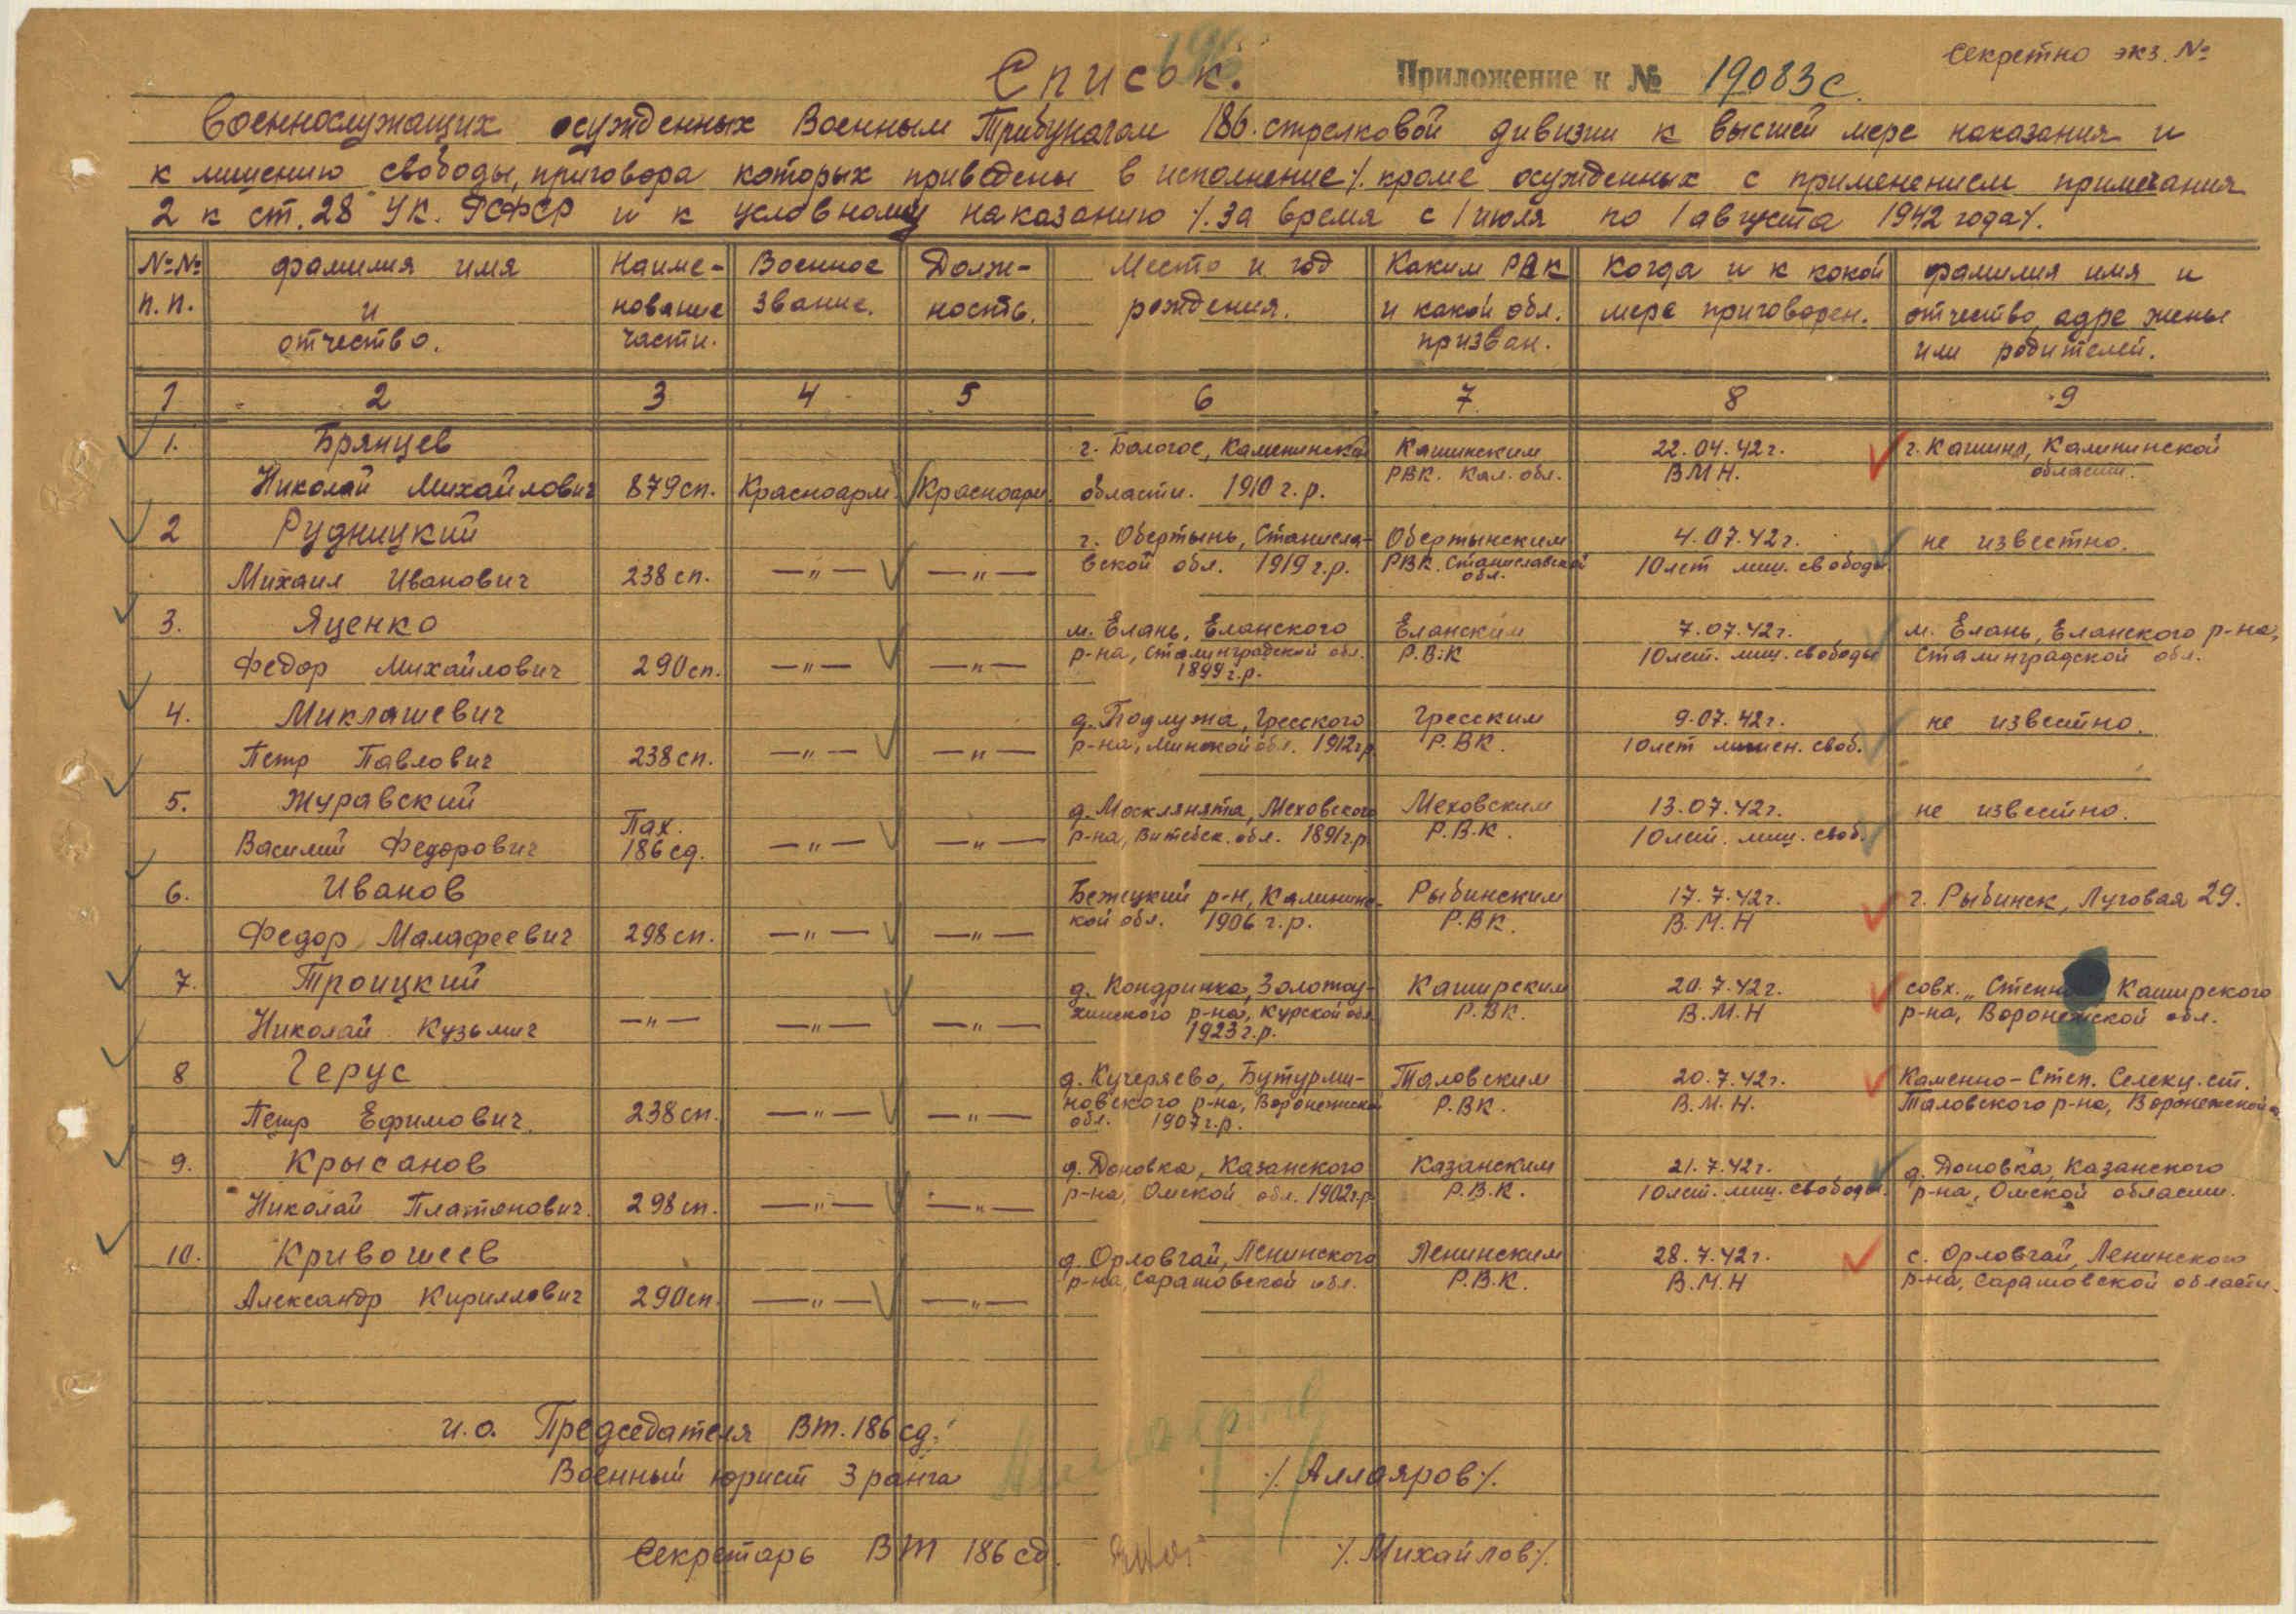 Секретно экз. №
Список.
Приложение к № 19083с.
Военнослужащих осужденных Военным Трибуналом 186. стрелковой дивизии к высшей мере наказания и
к лишению свободы, приговора которых приведены в исполнение ·/. кроме осужденных с применением примечания
2 к ст. 28 УК. РСФСР и к условному наказанию ·/. за время с 1 июля по 1 августа 1942 года ·/.
№№ п.п. | фамилия имя и отчество. | Наиме-нование части. | Военное звание. | Долж-ность. | Место и год рождения. | Каким РВК и какой обл. призван. | Когда и к какой мере приговорен. | фамилия имя и отчество, адре жены или родителей.
1 2 3 4 5 6 7 8 9
1. Брянцев г. Бологое, Калининской Кашинским 22.04.42г. г. Кашина, Калининской
Николай Михайлович 879 сп. Красноарм. Красноарм. области. 1910 г.р. РВК. Кал. обл. ВМН. области.
2 Рудницкий г. Обертынь, Станисла- Обертынским 4.07.42г. не известно.
Михаил Иванович 238 сп. —"— —"— вской обл. 1919 г.р. РВК. Станиславской обл. 10 лет лиш. свободы
3. Яценко м. Елань, Еланского Еланским 7.07.42г. м. Елань, Еланского р-на,
Федор Михайлович 290 сп. —"— —"— р-на, Сталинградской обл. 1899 г.р. Р.В.К 10 лет. лиш. свободы Сталинградской обл.
4. Миклашевич д. Подлужа, Гресского Гресским 9.07.42г. не известно.
Петр Павлович 238 сп. —"— —"— р-на, Минской обл. 1912 г.р. Р.ВК. 10 лет лишен. своб.
5. Журавский д. Москлянята, Меховского Меховским 13.07.42г. не известно.
Василий Федорович Пах. 186 сд. —"— —"— р-на, Витебск. обл. 1891 г.р. Р.В.К. 10 лет. лиш. своб.
6. Иванов Бежецкий р-н, Калининс- Рыбинским 17.7.42г. г. Рыбинск, Луговая 29.
Федор Малафеевич 298 сп. —"— —"— кой обл. 1906 г.р. Р.ВК. В.М.Н
7. Троицкий д. Кондринка, Золотоу- Каширским 20.7.42г. совх. Каширского
Николай Кузьмич —"— —"— —"— хинского р-на, Курской обл. 1923 г.р. Р.ВК. В.М.Н р-на, Воронежской обл.
8 Герус д. Кучеряево, Бутурли- Таловским 20.7.42г. Каменно-Степ. Селекц. ст.
Петр Ефимович. 238 сп. —"— —"— новского р-на, Воронежской обл. 1907 г.р. Р.ВК. В.М.Н. Таловского р-на, Воронежской
9. Крысанов д. Доновка, Казанского Казанским 21.7.42г. д. Доновка, Казанского
Николай Платонович. 298 сп. —"— —"— р-на, Омской обл. 1902 г.р. Р.В.К. 10 лет. лиш. свободы. р-на, Омской области.
10. Кривошеев д. Орловгай, Ленинского Ленинским 28.7.42г. с. Орловгай, Ленинского
Александр Кириллович 290 сп. —"— —"— р-на, Саратовской обл. Р.В.К. В.М.Н р-на, Саратовской области.
и.о. Председателя Вт. 186 сд.
Военный юрист 3 ранга ·/. Аллаяров ·/.
Секретарь ВТ 186 сд. ·/. Михайлов ·/.